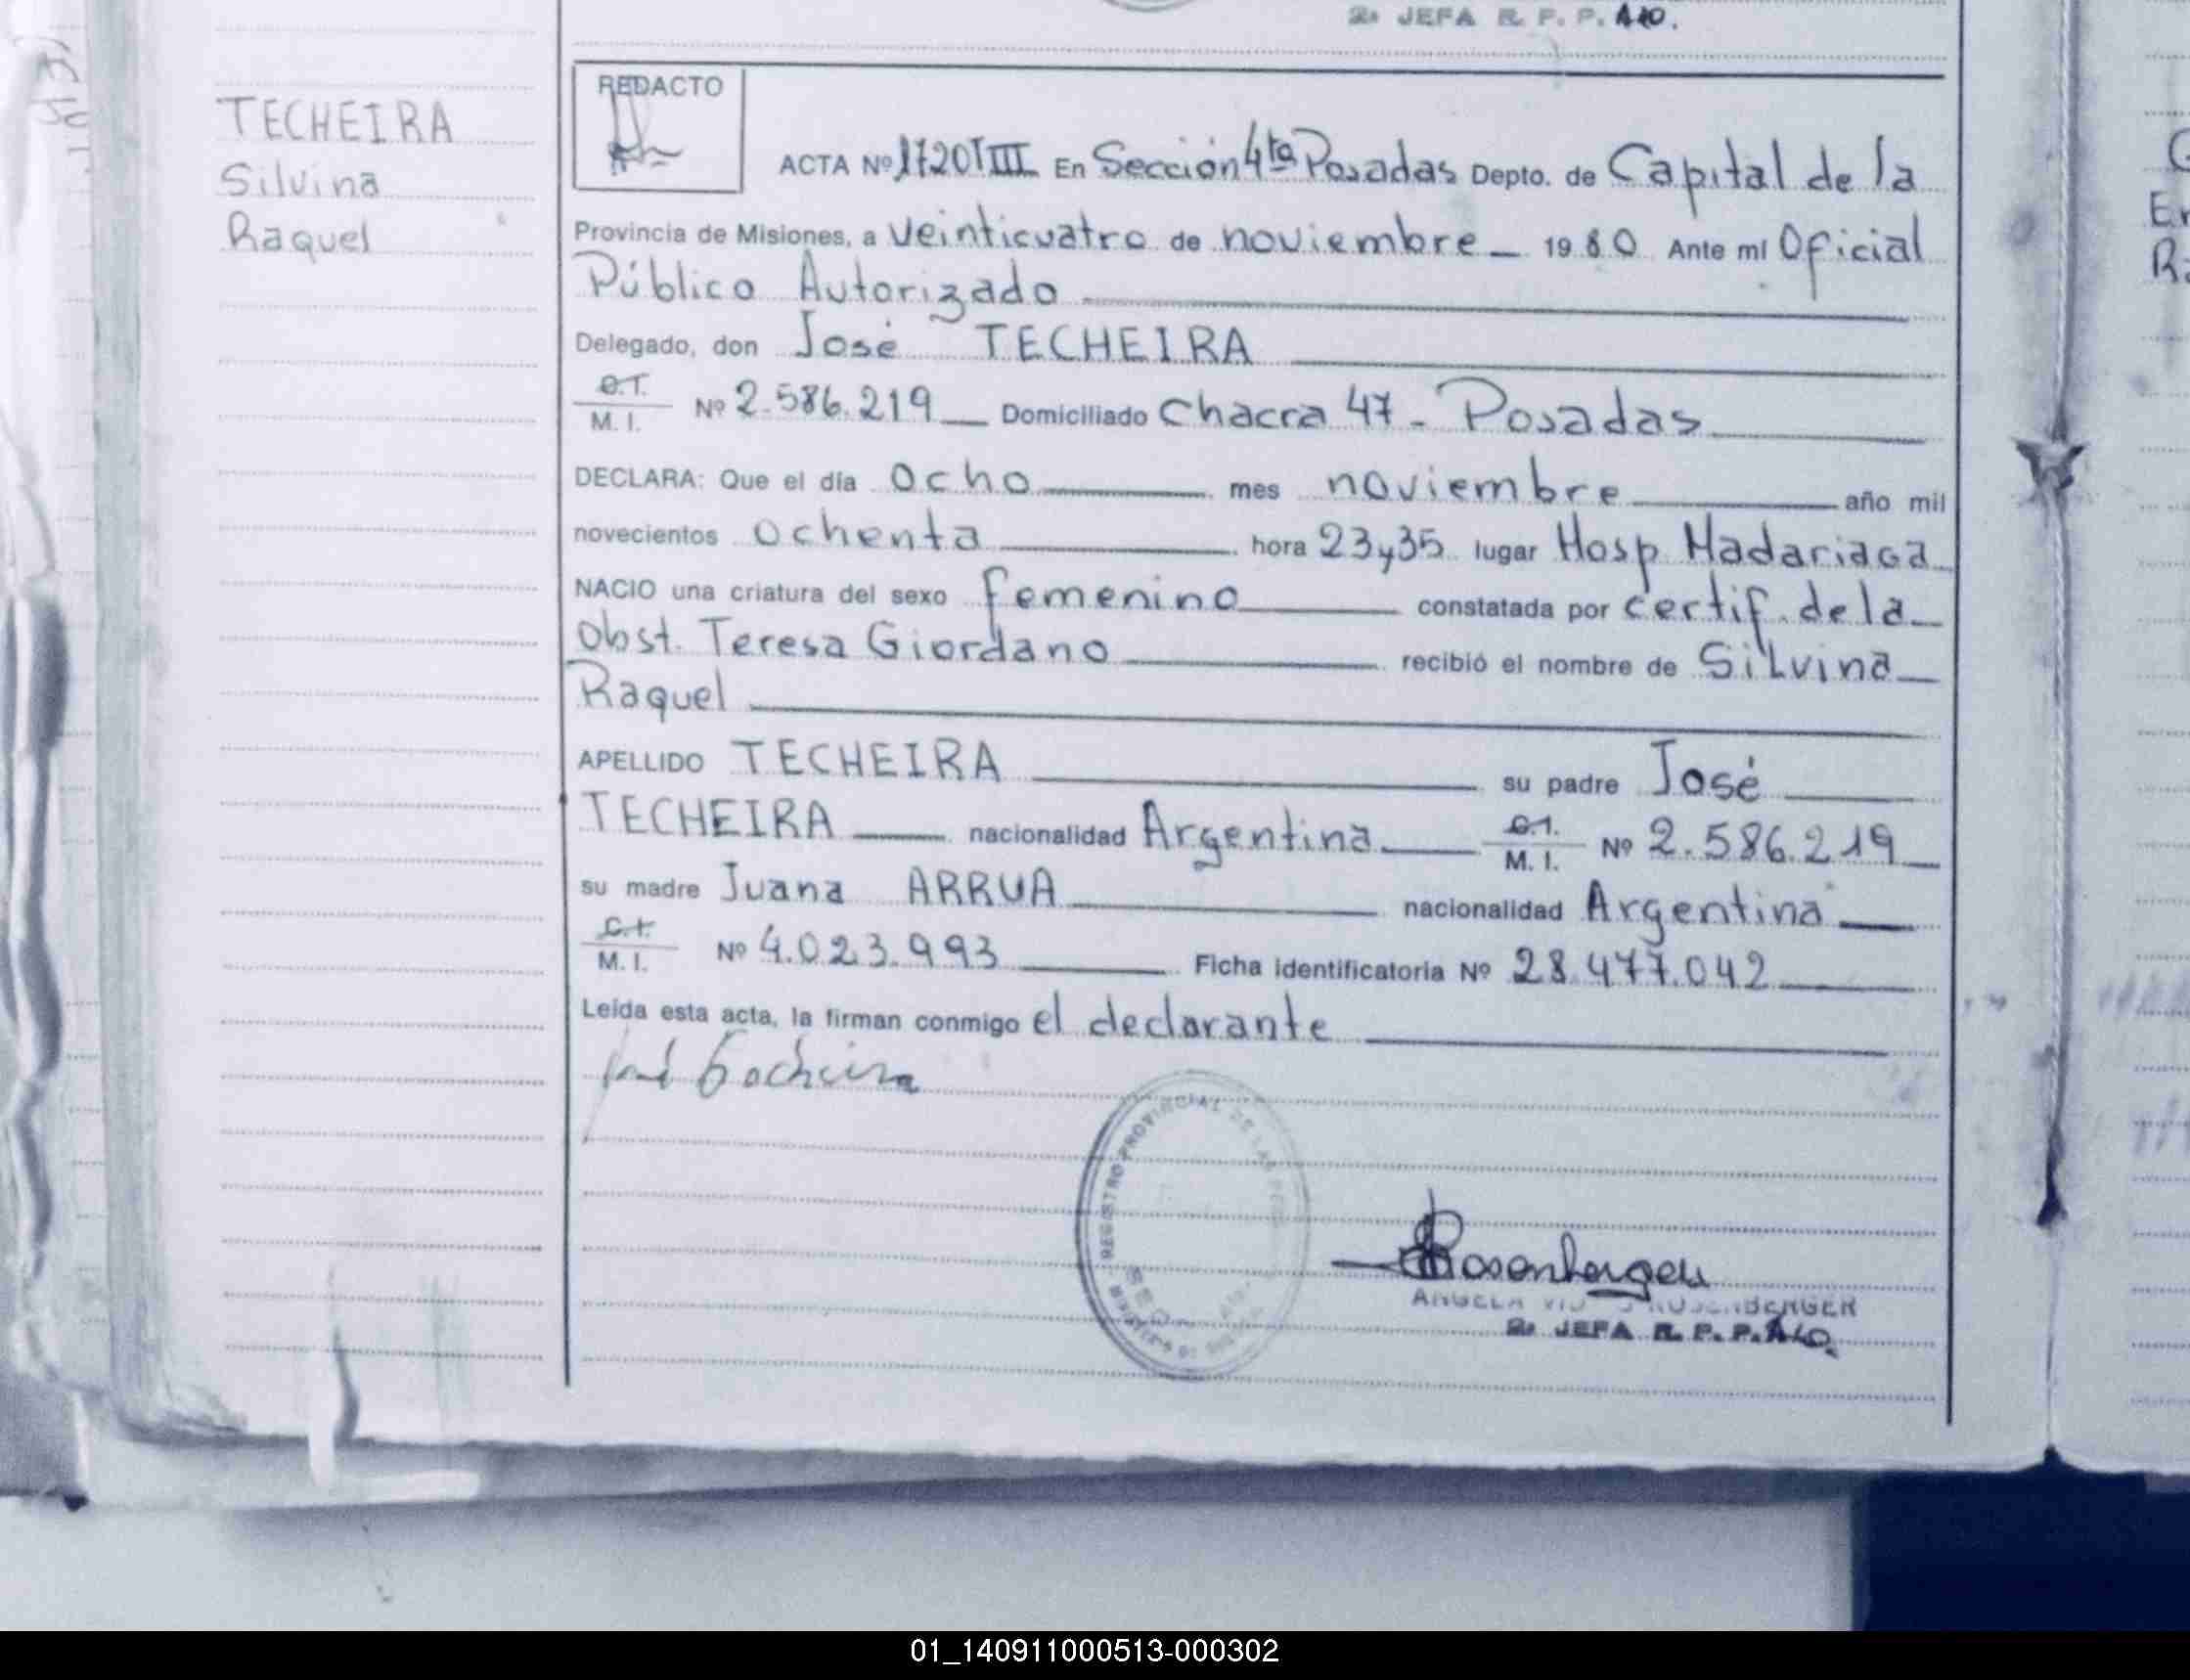 2a JEFA R. P. P. A/O.
TECHEIRA
Silvina
Raquel
REDACTO
ACTA Nº 1720 TIII En Sección 4ta Posadas Depto. de Capital de la
Provincia de Misiones, a veinticuatro de noviembre 1980 Ante mí Oficial
Público Autorizado
Delegado, don José TECHEIRA
C.I.
M. I. Nº 2.586.219 Domiciliado Chacra 47 - Posadas
DECLARA: Que el día ocho mes noviembre año mil
novecientos ochenta hora 23y35 lugar Hosp Madariaga
NACIO una criatura del sexo femenino constatada por certif. de la
Obst. Teresa Giordano recibió el nombre de Silvina
Raquel
APELLIDO TECHEIRA su padre José
TECHEIRA nacionalidad Argentina C.I. M. I. Nº 2.586.219
su madre Juana ARRUA nacionalidad Argentina
C.I.
M. I. Nº 4.023.993 Ficha identificatoria Nº 28.477.042
Leída esta acta, la firman conmigo el declarante
REGISTRO PROVINCIAL DE LAS
Rosenberger
ANGELA ROSENBERGER
2a JEFA R. P. P. A/O.
01_140911000513-000302